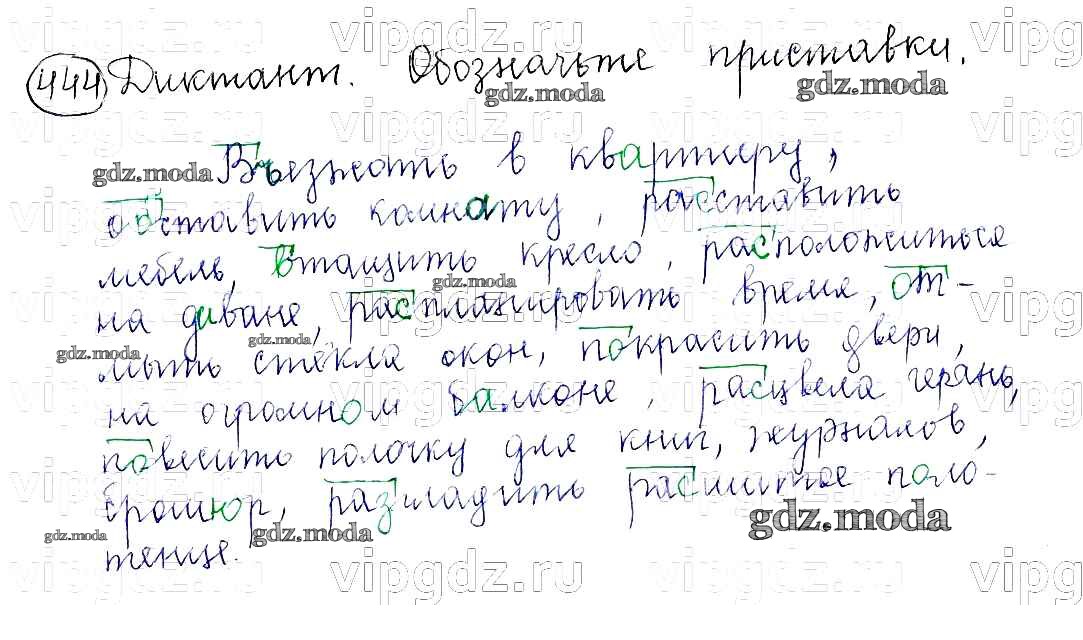 444 Диктант. Обозначьте приставки.
Въезжать в квартиру,
обставить комнату, расставить
мебель, втащить кресло, расположиться
на диване, распланировать время, от-
мыть стёкла окон, покрасить двери,
на огромном балконе, расцвела герань,
повесить полочку для книг, журналов,
брошюр, разгладить расшитое поло-
тенце.
vipgdz.ru
gdz.moda